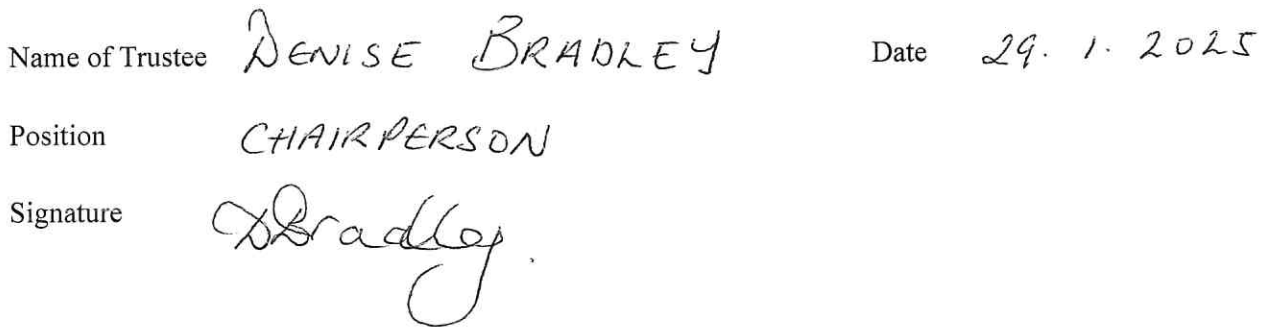 Name of Trustee DENISE BRADLEY Date 29. 1. 2025
Position CHAIRPERSON
Signature DBradley.